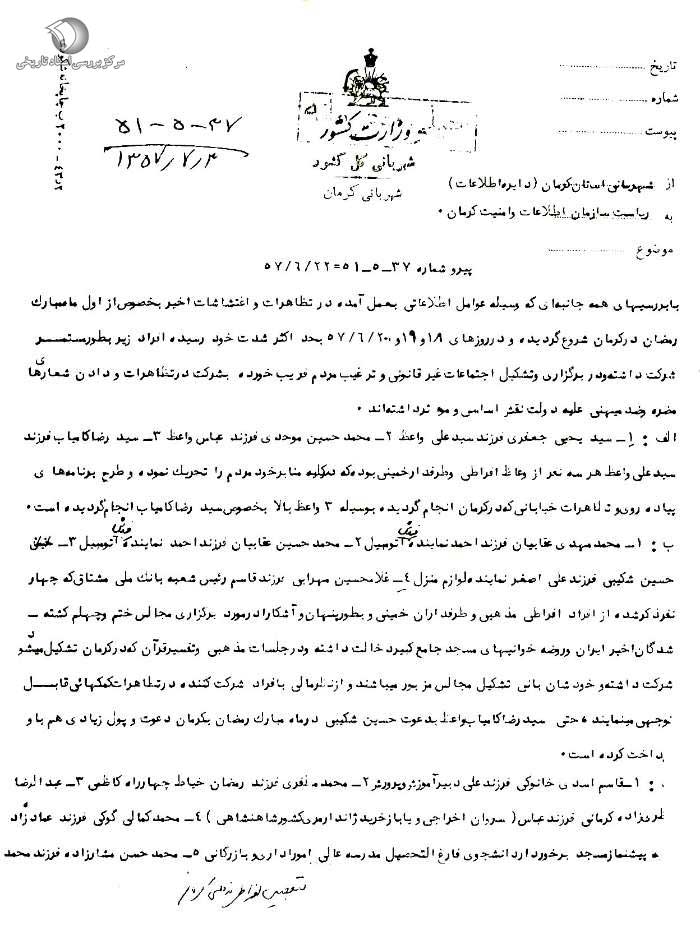 مرکز بررسی اسناد تاریخی
تاریخ
شماره
پیوست
وزارت کشور
شهربانی کل کشور
شهربانی کرمان
۳۷-۵-۵۱
۱۳۵۷/۷/۴
از شهربانی استان کرمان (دایره اطلاعات)
به ریاست سازمان اطلاعات و امنیت کرمان ۰
موضوع
پیرو شماره ۳۷-۵-۵۱=۵۷/۶/۲۲
بابررسیهای همه جانبه‌ای که وسیله عوامل اطلاعاتی بعمل آمده در تظاهرات و اغتشاشات اخیر بخصوص از اول ماه مبارک
رمضان در کرمان شروع گردیده و در روزهای ۱۸ و ۱۹ و ۵۷/۶/۲۰ بحد اکثر شدت خود رسیده افراد زیر بطور مستمر
شرکت داشته و در برگزاری و تشکیل اجتماعات غیر قانونی و ترغیب مردم فریب خورده بشرکت در تظاهرات و دادن شعارهای
مضره و ضد میهنی علیه دولت نقش اساسی و موثر داشته‌اند ۰
الف : ۱- سید یحیی جعفری فرزند سید علی واعظ ۲- محمد حسین موحدی فرزند عباس واعظ ۳- سید رضا کامیاب فرزند
سید علی واعظ هر سه نفر از وعاظ افراطی و طرفدار خمینی بوده که در کلیه منابر خود مردم را تحریک نموده و طرح برنامه‌های
پیاده روی و تظاهرات خیابانی که در کرمان انجام گردیده بوسیله ۳ واعظ بالا بخصوص سید رضا کامیاب انجام گردیده است ۰
ب : ۱- محمد مهدی عقابیان فرزند احمد نماینده فروش اتومبیل ۲- محمد حسین عقابیان فرزند احمد نماینده فروش اتومبیل ۳-
حسین شکیبی فرزند علی اصغر نماینده لوازم منزل ۴- غلامحسین مهرابی فرزند قاسم رئیس شعبه بانک ملی مشتاق که چهار
نفر ذکر شده از افراد افراطی مذهبی و طرفداران خمینی و بطور پنهان و آشکارا در مورد برگزاری مجالس ختم و چهلم کشته -
شدگان اخیر ایران و روضه خوانیهای مسجد جامع کبیر دخالت داشته و در جلسات مذهبی و تفسیر قرآن که در کرمان تشکیل میشود
شرکت داشته و خودشان بانی تشکیل مجالس مزبور میباشند و از نظر مالی بافراد شرکت کننده در تظاهرات کمکهائی قابل
توجهی مینمایند ، حتی سید رضا کامیاب واعظ بدعوت حسین شکیبی در ماه مبارک رمضان بکرمان دعوت و پول زیادی هم باو
پرداخت کرده است ۰
: ۱- قاسم اسدی خانوکی فرزند علی دبیر آموزش و پرورش ۲- محمد مظفری فرزند رمضان خیاط چهارراه کاظمی ۳- عبدالرضا
کرمانی فرزند عباس (سروان اخراجی و یا بازخرید ژاندارمری کشور شاهنشاهی) ۴- محمد کمالی گوکی فرزند عماد
پیشنماز مسجد برخوردار دانشجوی فارغ التحصیل مدرسه عالی امور اداری و بازرگانی ۵- محمد حسن مشارزاده فرزند محمد